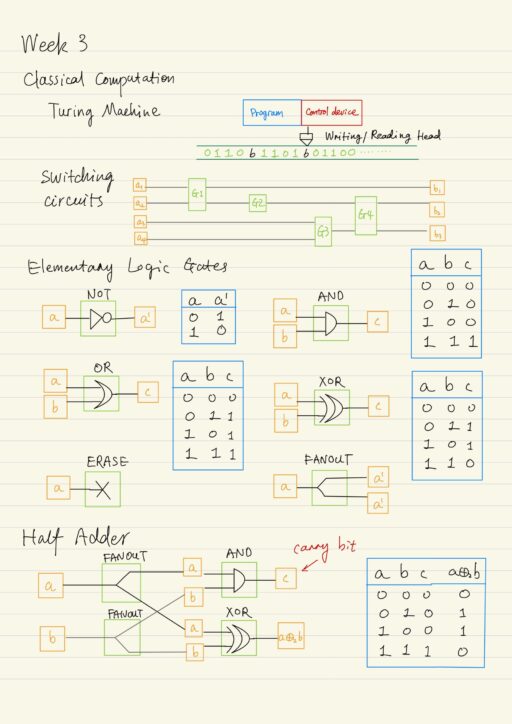 Week 3
Classical Computation
Turing Machine
Program Control device
Writing/Reading Head
0 1 1 0 b 1 1 0 1 b 0 1 1 0 0 ........
Switching circuits
a₁ G1 b₁
a₂ G2 G4 b₂
a₃ G3 b₃
a₄
Elementary Logic Gates
NOT
a a'
a a'
0 1
1 0
AND
a
b
c
a b c
0 0 0
0 1 0
1 0 0
1 1 1
OR
a
b
c
a b c
0 0 0
0 1 1
1 0 1
1 1 1
XOR
a
b
c
a b c
0 0 0
0 1 1
1 0 1
1 1 0
ERASE
a
FANOUT
a
a'
a'
Half Adder
FANOUT
a
FANOUT
b
AND
a
b
c
carry bit
XOR
a
b
a⊕₂b
a b c a⊕₂b
0 0 0 0
0 1 0 1
1 0 0 1
1 1 1 0